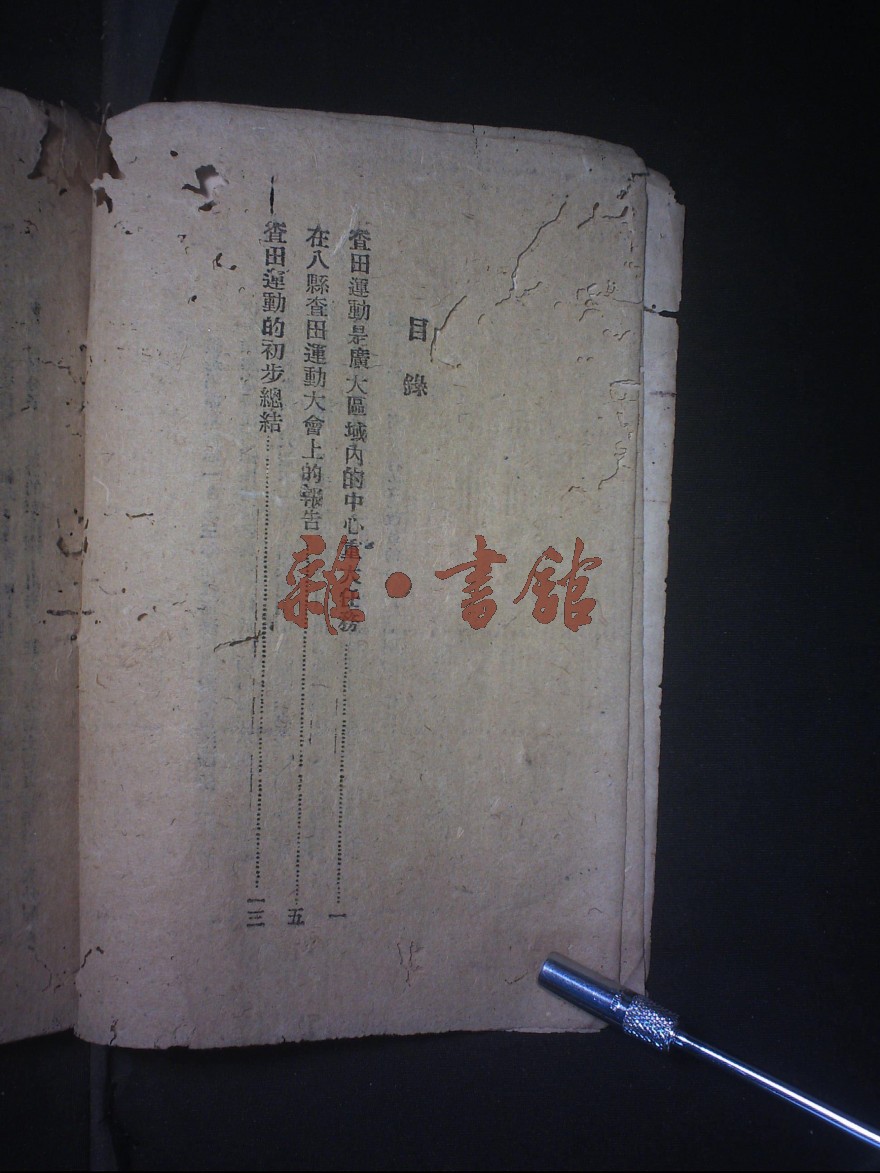 目錄
查田運動是廣大區域內的中心重大任務……一
在八縣查田運動大會上的報告……五
查田運動的初步總結……一三
雜·書館